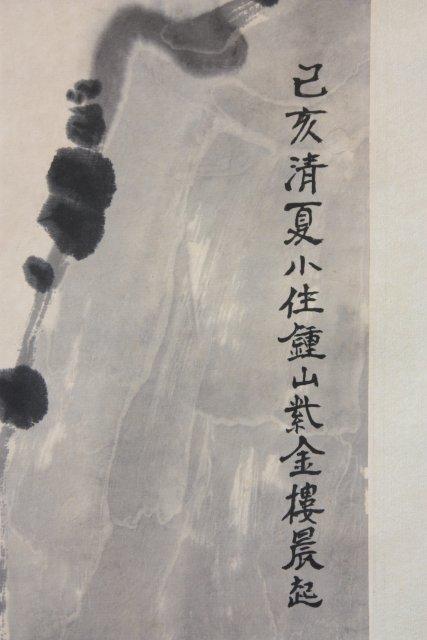 己亥清夏小住鍾山紫金樓晨起